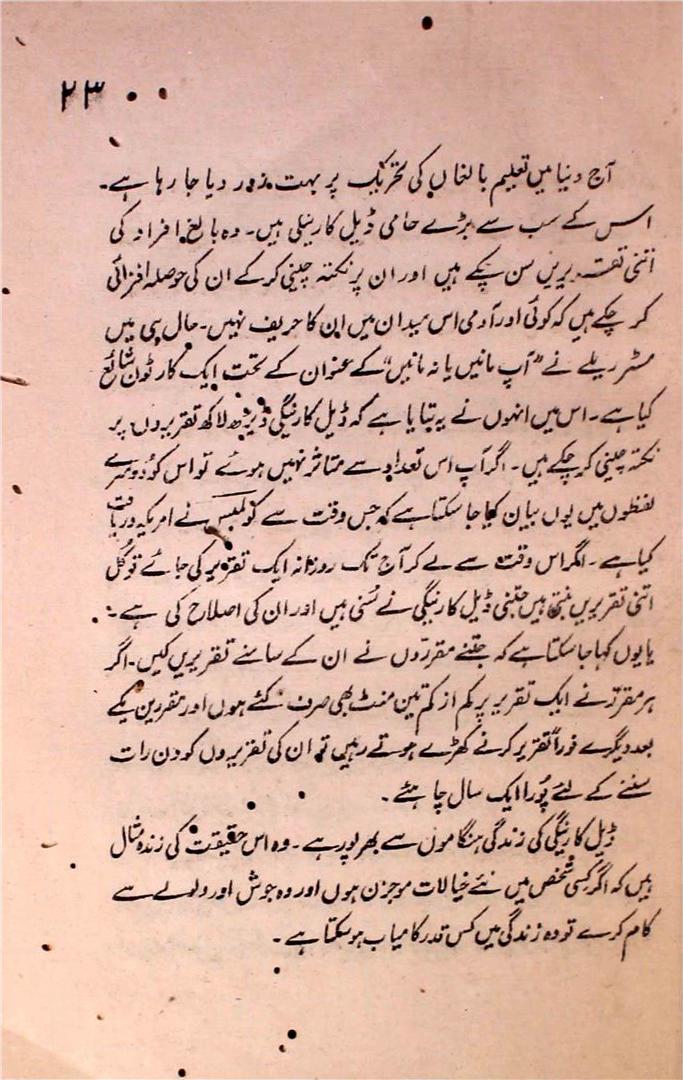 ۲۳
آج دنیا میں تعلیم بالغاں کی تحریک پر بہت زور دیا جا رہا ہے۔
اس کے سب سے بڑے حامی ڈیل کارنیگی ہیں۔ وہ بالغ افراد کی
اتنی تقریریں سن چکے ہیں اور ان پر نکتہ چینی کر کے ان کی حوصلہ افزائی
کر چکے ہیں کہ کوئی اور آدمی اس میدان میں ان کا حریف نہیں۔ حال ہی میں
مسٹر رپلے نے ”آپ مانیں یا نہ مانیں“ کے عنوان کے تحت ایک کارٹون شائع
کیا ہے۔ اس میں انہوں نے یہ بتایا ہے کہ ڈیل کارنیگی ڈیڑھ لاکھ تقریروں پر
نکتہ چینی کر چکے ہیں۔ اگر آپ اس تعداد سے متاثر نہیں ہوئے تو اس کو دوسرے
لفظوں میں یوں بیان کیا جا سکتا ہے کہ جس وقت سے کولمبس نے امریکہ دریافت
کیا ہے۔ اگر اس وقت سے لے کر آج تک روزانہ ایک تقریر کی جائے تو کُل
اتنی تقریریں بنتی ہیں جتنی ڈیل کارنیگی نے سُنی ہیں اور ان کی اصلاح کی ہے۔
یا یوں کہا جا سکتا ہے کہ جتنے مقرروں نے ان کے سامنے تقریریں کیں۔ اگر
ہر مقرر نے ایک تقریر پر کم از کم تین منٹ بھی صرف کئے ہوں اور مقررین یکے
بعد دیگرے فوراً تقریر کرنے کھڑے ہوتے رہیں تو ان کی تقریروں کو دن رات
سننے کے لئے پُورا ایک سال چاہئے۔
ڈیل کارنیگی کی زندگی ہنگاموں سے بھرپور ہے۔ وہ اس حقیقت کی زندہ مثال
ہیں کہ اگر کسی شخص میں نئے خیالات موجزن ہوں اور وہ جوش اور ولولے سے
کام کرے تو وہ زندگی میں کس قدر کامیاب ہو سکتا ہے۔